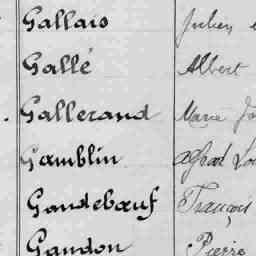 Gallais Julien
Gallé Albert
Gallerand Marie
Gamblin Alfred
Gandebœuf François
Gandon Pierre